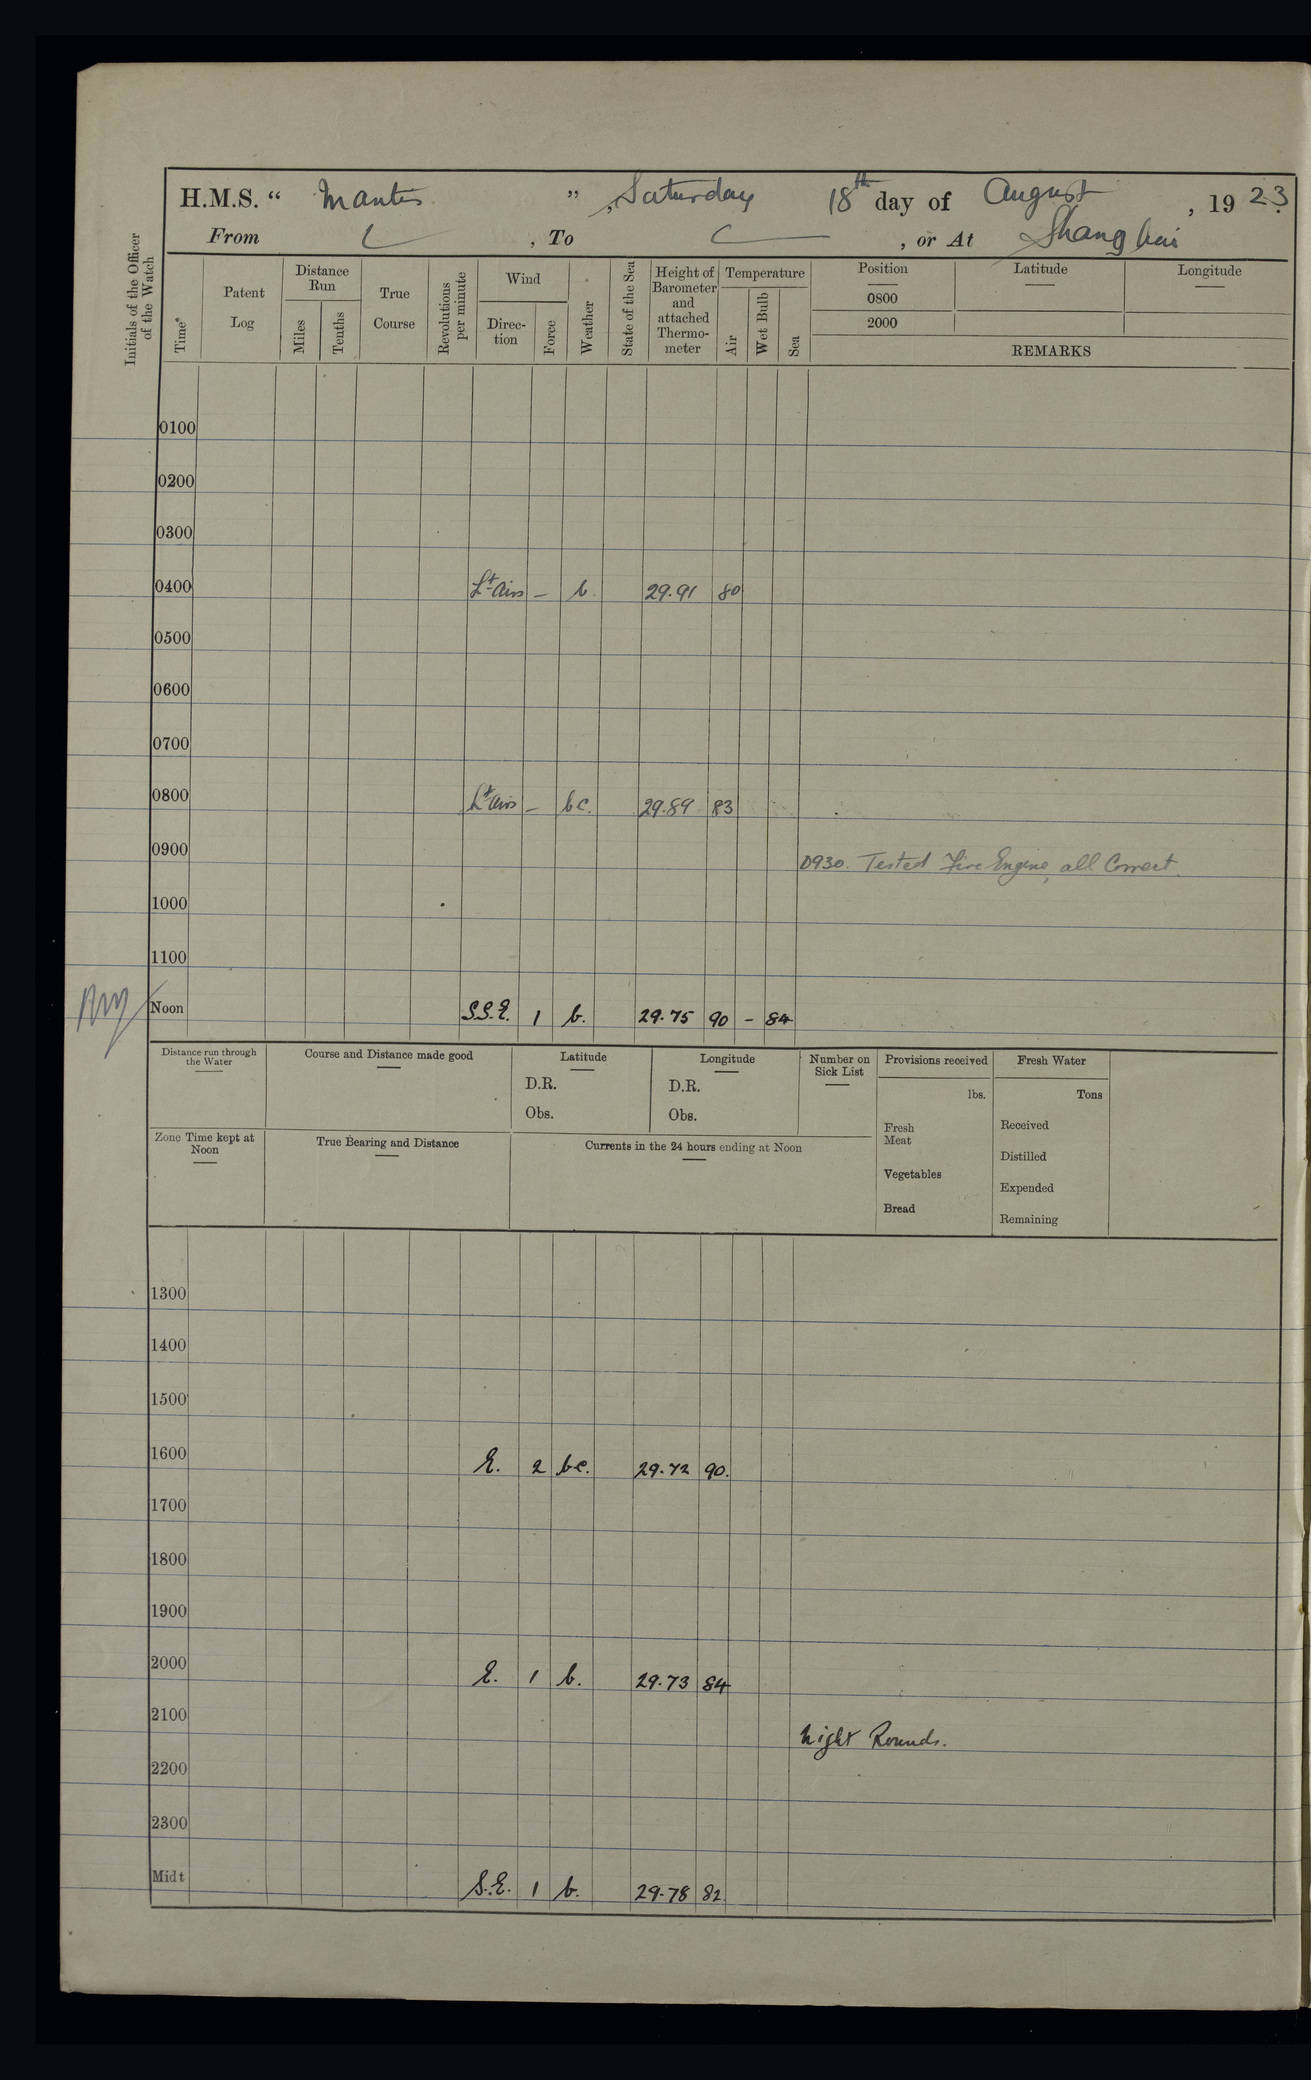 H.M.S. " Mantis ", Saturday 18th day of August, 1923.
From , To , or At Shanghai
Initials of the Officer of the Watch
Time*
Patent Log
Distance Run
Miles
Tenths
True Course
Revolutions per minute
Wind
Direc-tion
Force
Weather
State of the Sea
Height of Barometer and attached Thermo-meter
Temperature
Air
Wet Bulb
Sea
Position Latitude Longitude
0800
2000
REMARKS
0100
0200
0300
0400 Lt airs — b. 29.91 80
0500
0600
0700
0800 Lt airs — bc. 29.89 83
0900 0930. Tested Fire Engine, all Correct.
1000
1100
Noon S.S.E. 1 b. 29.75 90 - 84
Distance run through the Water
Course and Distance made good
Latitude
D.R.
Obs.
Longitude
D.R.
Obs.
Number on Sick List
Provisions received
lbs.
Fresh Meat
Vegetables
Bread
Fresh Water
Tons
Received
Distilled
Expended
Remaining
Zone Time kept at Noon
True Bearing and Distance
Currents in the 24 hours ending at Noon
1300
1400
1500
1600 E. 2 bc. 29.72 90.
1700
1800
1900
2000 E. 1 b. 29.73 84
2100 Night Rounds.
2200
2300
Midt S.E. 1 b. 29.78 82